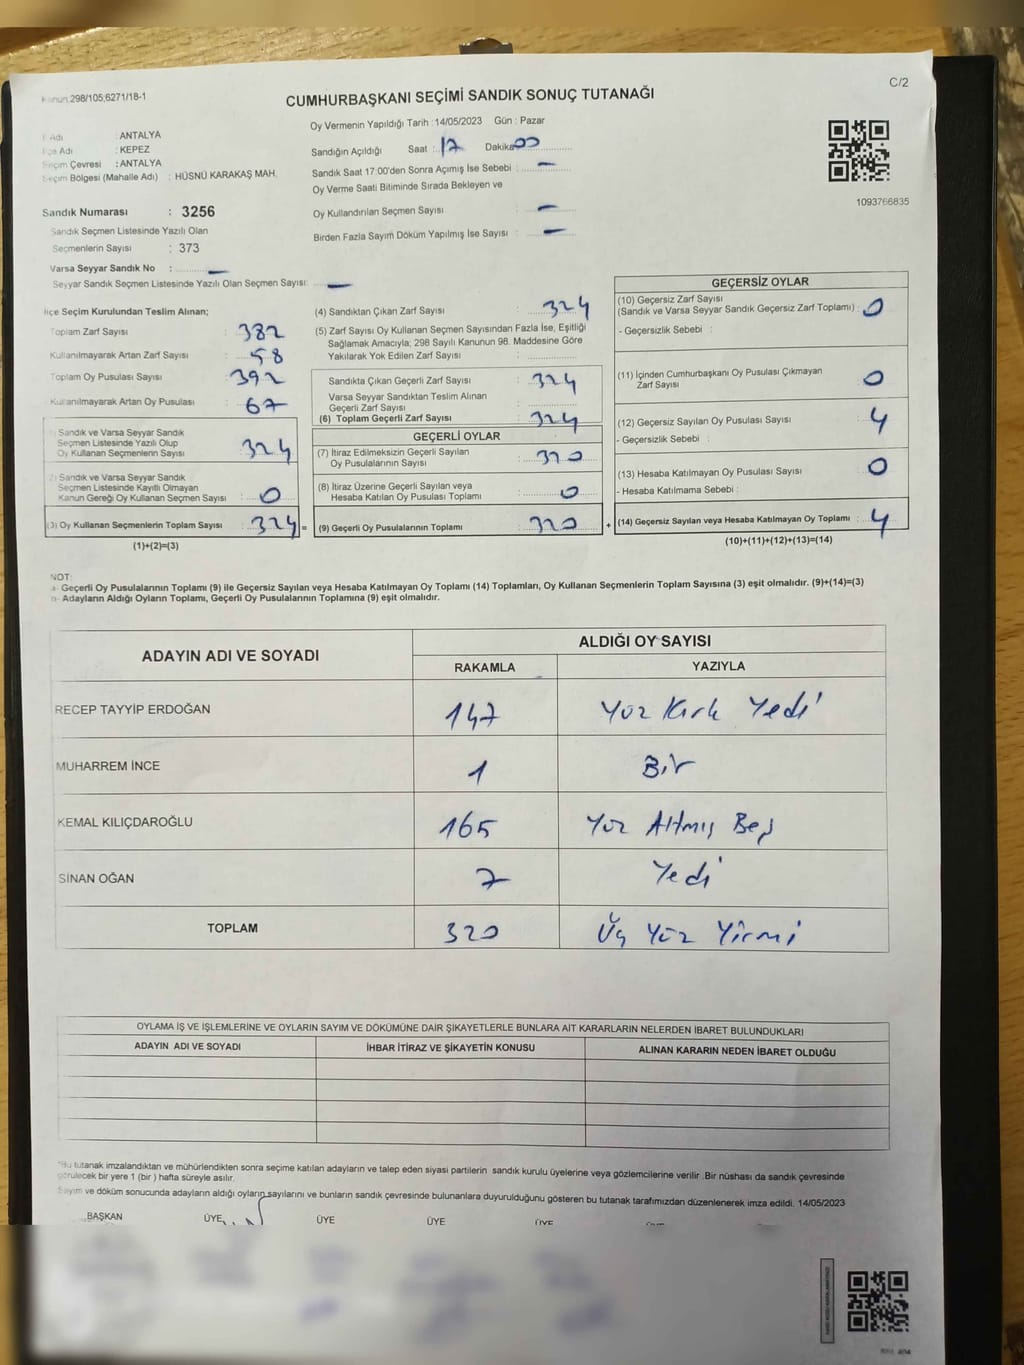 298/105;6271/18-1
C/2
CUMHURBAŞKANI SEÇİMİ SANDIK SONUÇ TUTANAĞI
Oy Vermenin Yapıldığı Tarih : 14/05/2023 Gün : Pazar
Adı : ANTALYA
Adı : KEPEZ
Seçim Çevresi : ANTALYA
Seçim Bölgesi (Mahalle Adı) : HÜSNÜ KARAKAŞ MAH.
Sandık Numarası : 3256
Sandık Seçmen Listesinde Yazılı Olan
Seçmenlerin Sayısı : 373
Varsa Seyyar Sandık No : —
Seyyar Sandık Seçmen Listesinde Yazılı Olan Seçmen Sayısı: —
Sandığın Açıldığı Saat : 17 Dakika 00
Sandık Saat 17:00'den Sonra Açımış İse Sebebi : —
Oy Verme Saati Bitiminde Sırada Bekleyen ve
Oy Kullandırılan Seçmen Sayısı : —
Birden Fazla Sayım Döküm Yapılmış İse Sayısı : —
1093766835
İlçe Seçim Kurulundan Teslim Alınan;
Toplam Zarf Sayısı : 382
Kullanılmayarak Artan Zarf Sayısı : 58
Toplam Oy Pusulası Sayısı : 392
Kullanılmayarak Artan Oy Pusulası : 67
Sandık ve Varsa Seyyar Sandık
Seçmen Listesinde Yazılı Olup
Oy Kullanan Seçmenlerin Sayısı : 324
Sandık ve Varsa Seyyar Sandık
Seçmen Listesinde Kayıtlı Olmayan
Kanun Gereği Oy Kullanan Seçmen Sayısı : 0
(3) Oy Kullanan Seçmenlerin Toplam Sayısı : 324 =
(1)+(2)=(3)
(4) Sandıktan Çıkan Zarf Sayısı : 324
(5) Zarf Sayısı Oy Kullanan Seçmen Sayısından Fazla İse, Eşitliği
Sağlamak Amacıyla; 298 Sayılı Kanunun 98. Maddesine Göre
Yakılarak Yok Edilen Zarf Sayısı :
Sandıkta Çıkan Geçerli Zarf Sayısı : 324
Varsa Seyyar Sandıktan Teslim Alınan
Geçerli Zarf Sayısı :
(6) Toplam Geçerli Zarf Sayısı : 324
GEÇERLİ OYLAR
(7) İtiraz Edilmeksizin Geçerli Sayılan
Oy Pusulalarının Sayısı : 320
(8) İtiraz Üzerine Geçerli Sayılan veya
Hesaba Katılan Oy Pusulası Toplamı : 0
(9) Geçerli Oy Pusulalarının Toplamı : 320 +
GEÇERSİZ OYLAR
(10) Geçersiz Zarf Sayısı
(Sandık ve Varsa Seyyar Sandık Geçersiz Zarf Toplamı) : 0
- Geçersizlik Sebebi :
(11) İçinden Cumhurbaşkanı Oy Pusulası Çıkmayan
Zarf Sayısı : 0
(12) Geçersiz Sayılan Oy Pusulası Sayısı : 4
- Geçersizlik Sebebi :
(13) Hesaba Katılmayan Oy Pusulası Sayısı : 0
- Hesaba Katılmama Sebebi :
(14) Geçersiz Sayılan veya Hesaba Katılmayan Oy Toplamı : 4
(10)+(11)+(12)+(13)=(14)
NOT:
a- Geçerli Oy Pusulalarının Toplamı (9) ile Geçersiz Sayılan veya Hesaba Katılmayan Oy Toplamı (14) Toplamları, Oy Kullanan Seçmenlerin Toplam Sayısına (3) eşit olmalıdır. (9)+(14)=(3)
b- Adayların Aldığı Oyların Toplamı, Geçerli Oy Pusulalarının Toplamına (9) eşit olmalıdır.
ADAYIN ADI VE SOYADI ALDIĞI OY SAYISI
RAKAMLA YAZIYLA
RECEP TAYYİP ERDOĞAN 147 Yüz Kırk Yedi
MUHARREM İNCE 1 Bir
KEMAL KILIÇDAROĞLU 165 Yüz Altmış Beş
SİNAN OĞAN 7 Yedi
TOPLAM 320 Üç Yüz Yirmi
OYLAMA İŞ VE İŞLEMLERİNE VE OYLARIN SAYIM VE DÖKÜMÜNE DAİR ŞİKAYETLERLE BUNLARA AİT KARARLARIN NELERDEN İBARET BULUNDUKLARI
ADAYIN ADI VE SOYADI İHBAR İTİRAZ VE ŞİKAYETİN KONUSU ALINAN KARARIN NEDEN İBARET OLDUĞU
*Bu tutanak imzalandıktan ve mühürlendikten sonra seçime katılan adayların ve talep eden siyasi partilerin sandık kurulu üyelerine veya gözlemcilerine verilir .Bir nüshası da sandık çevresinde
görülecek bir yere 1 (bir ) hafta süreyle asılır.
Sayım ve döküm sonucunda adayların aldığı oyların sayılarını ve bunların sandık çevresinde bulunanlara duyurulduğunu gösteren bu tutanak tarafımızdan düzenlenerek imza edildi. 14/05/2023
BAŞKAN ÜYE ÜYE ÜYE ÜYE